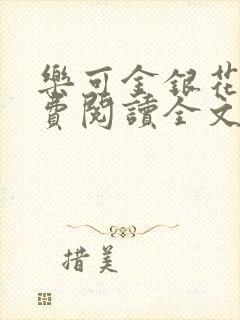 樂可金銀花
費閱讀全文
措美